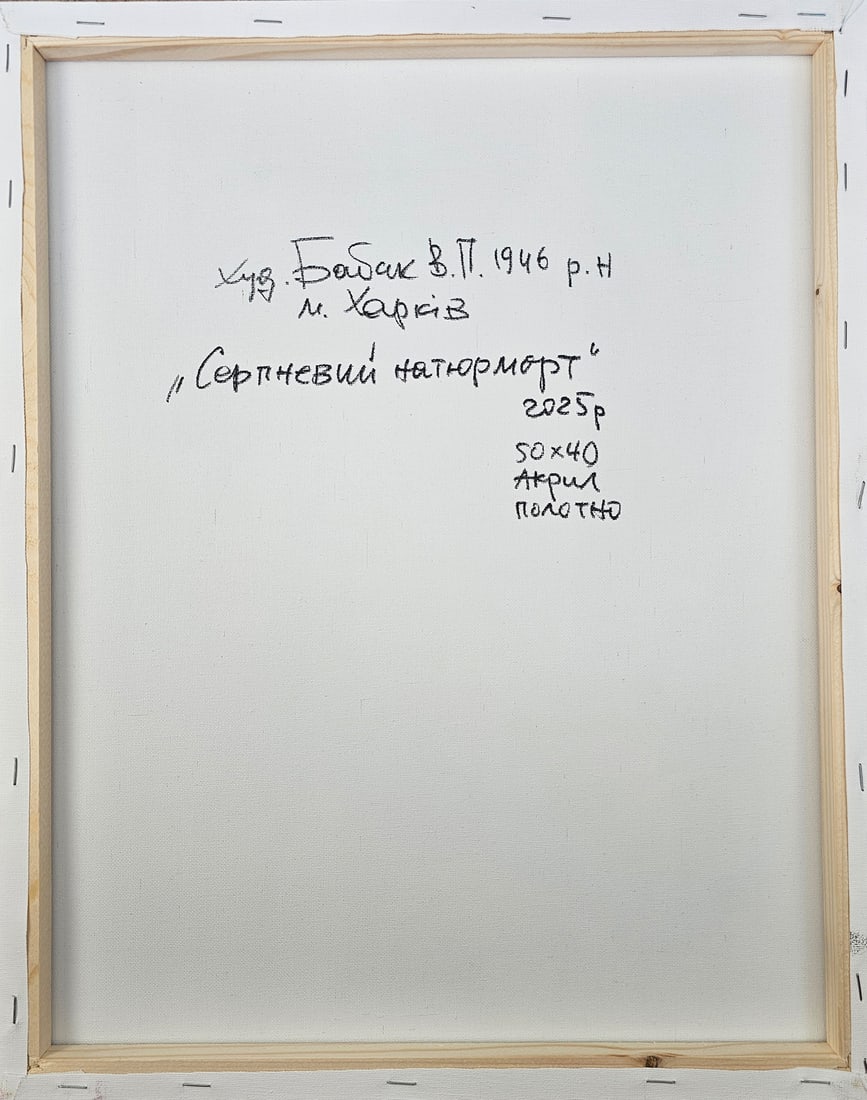 худ. Бабак В.П. 1946 р.н
м. Харків
„Серпневий натюрморт“
2025р
50х40
Акрил
полотно